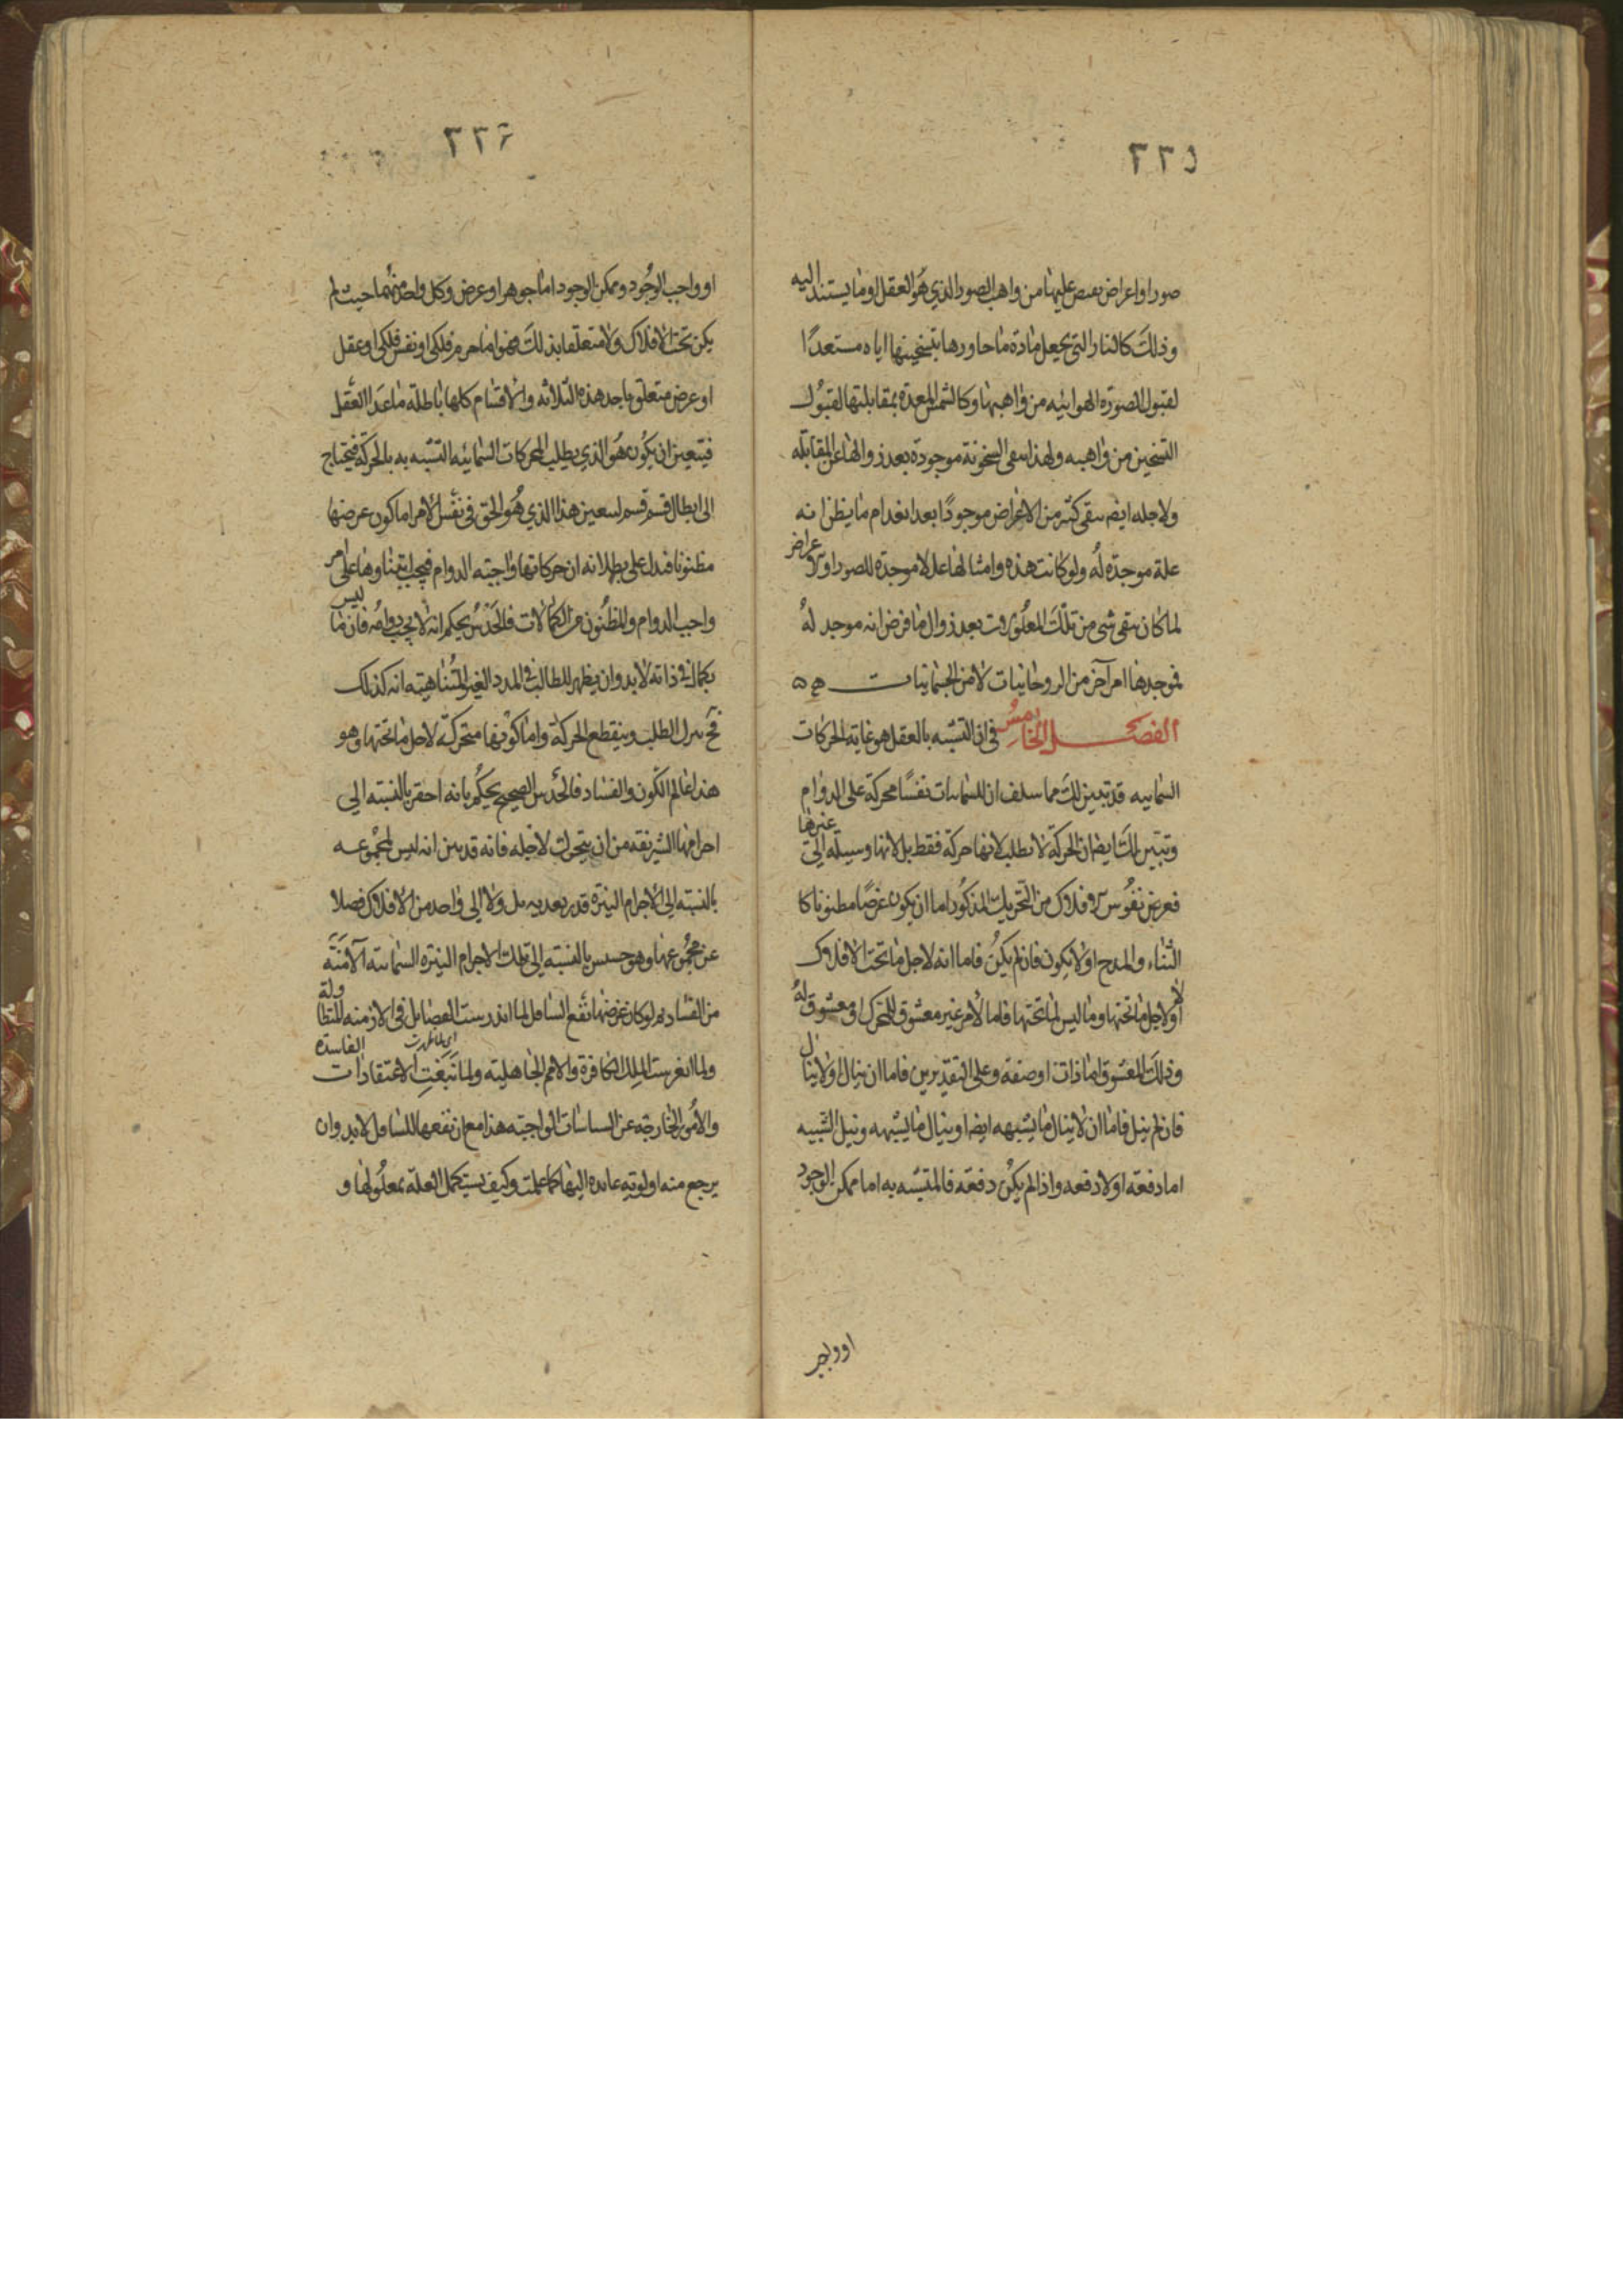 ٢٢٥
صورا واعراض تفيض عليها من واهب الصور الذي هو العقل او ما يستند اليه
وذلك كالنار التي يجعل مادة ما جاورها بتسخينها اياه مستعدًا
لقبول الصورة الهوائيه من واهبها وكالشمس المعدة بمقابلتها لقبول
التسخين من واهبه ولهذا سقى السخونة موجودة بعد زوالها عن المقابله
ولاجله ايضا سقى كثير من الاعراض موجودًا بعد انعدام ما يظن انه
علة موجدة له ولو كانت هذه وامثالها عللا موجدة للصور او الاعراض
لما كان سقى شي من تلك المعلولات بعد زوال ما فرض انه موجد له
فموجدها امر آخر من الروحانيات لا من الجسمانيات
الفصل الخامس في ان التشبه بالعقل هو غاية الحركات
السمائيه قد تبين لك مما سلف ان للسمائيات نفسًا محركة على الدوام
وتبين لك ايضا ان الحركة لا تطلب لانها حركة فقط بل لانها وسيلة الى غيرها
فغرض نفوس الافلاك من التحريك المذكور اما ان يكون غرضًا مظنونا كا
الثناء والمدح او لا يكون فان لم يكن فاما انه لاجل ما تحت الافلاك
او لا لاجل ما تحتها وما ليس لما تحتها فاما لأمر غير معشوق للمتحرك او معشوق له
وذلك المعشوق اما ذات او صفة وعلى التقديرين فاما ان ينال او لا ينال
فان لم ينل فاما ان لا ينال ما يشبهه ايضا او ينال ما يشبهه ونيل الشبيه
اما دفعة او لا دفعه واذا لم يكن دفعة فالمتشبه به اما ممكن الوجود
او واجب
٢٢٦
او واجب الوجود وممكن الوجود اما جوهر او عرض وكل واحد منهما حيث لم
يكن تحت الافلاك ولا متعلقا بذلك فهو اما جرم فلكي او نفس فلكي او عقل
او عرض متعلق باحد هذه الثلاثه والاقسام كلها باطلة ما عدا العقل
فيتعين ان يكون هو الذي يطلب المحركات السمائيه التشبه به بالحركة فيحتاج
الى ابطال قسم قسم لسعين هذا الذي هو الحق في نفس الأمر اما كون عرضها
مظنونا فدل على بطلانه ان حركاتها واجبة الدوام فيجب ابتناوها على امر
واجب الدوام والمظنون من الكمالات فالحدس يحكم انه لا يجب دوامه فان ما ليس
بكمال في ذاته لا بد وان يظهر للطالب في المدد الغير المتناهية انه كذلك
فح سرل الطلب وينقطع الحركة واما كونها متحركة لاجل ما تحتها وهو
هذا عالم الكون والفساد فالحدس الصحيح يحكم بانه احقر بالنسبة الى
اجرامها الشريفة من ان يتحرك لاجله فانه قد بين انه ليس لمجموعه
بالنسبة الى الاجرام النيرة قدر يعد به بل ولا الى واحد من الافلاك فضلا
عن مجموعها وهو خسيس بالنسبة الى تلك الاجرام النيرة السمائية الآمنة
من الفساد ثم لو كان غرضها نفع السافل لما اندرست الفضايل في الازمنه المتطاولة
ولما انغرست الملل الكافرة والامم الجاهلية ولما نبغت اى لما ظهرت الاعتقادات الفاسدة
والامور الخارجة عن السياسات الواجبة هذا مع ان نفعها للسافل لا بد وان
يرجع منه اولوية عايدة اليها كما علمت وكيف يستكمل العلة بمعلولها و